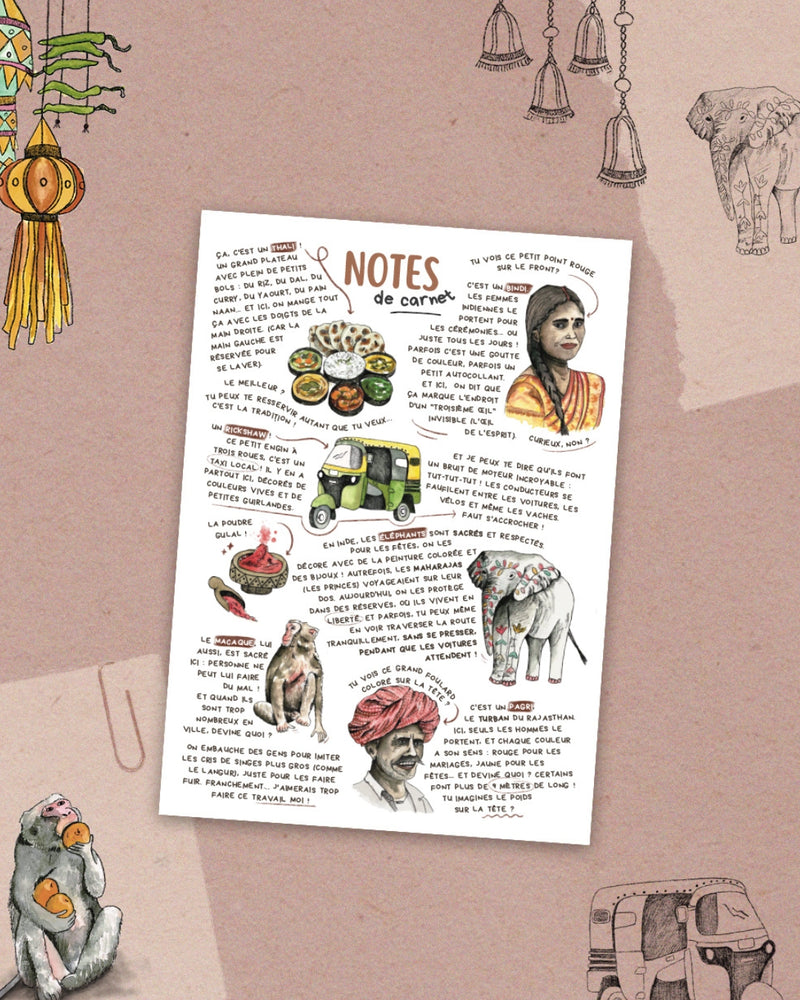 NOTES
de carnet
ÇA, C'EST UN THALI !
UN GRAND PLATEAU
AVEC PLEIN DE PETITS
BOLS : DU RIZ, DU DAL, DU
CURRY, DU YAOURT, DU PAIN
NAAN... ET ICI, ON MANGE TOUT
ÇA AVEC LES DOIGTS DE LA
MAIN DROITE. (CAR LA
MAIN GAUCHE EST
RÉSERVÉE POUR
SE LAVER).
LE MEILLEUR ?
TU PEUX TE RESSERVIR AUTANT QUE TU VEUX...
C'EST LA TRADITION !
TU VOIS CE PETIT POINT ROUGE
SUR LE FRONT?
C'EST UN BINDI.
LES FEMMES
INDIENNES LE
PORTENT POUR
LES CÉRÉMONIES... OU
JUSTE TOUS LES JOURS !
PARFOIS C'EST UNE GOUTTE
DE COULEUR, PARFOIS UN
PETIT AUTOCOLLANT.
ET ICI, ON DIT QUE
ÇA MARQUE L'ENDROIT
D'UN "TROISIÈME ŒIL"
INVISIBLE (L'ŒIL
DE L'ESPRIT).
CURIEUX, NON ?
UN RICKSHAW !
CE PETIT ENGIN À
TROIS ROUES, C'EST UN
TAXI LOCAL ! IL Y EN A
PARTOUT ICI, DÉCORÉS DE
COULEURS VIVES ET DE
PETITES GUIRLANDES.
ET JE PEUX TE DIRE QU'ILS FONT
UN BRUIT DE MOTEUR INCROYABLE :
TUT-TUT-TUT ! LES CONDUCTEURS SE
FAUFILENT ENTRE LES VOITURES, LES
VÉLOS ET MÊME LES VACHES.
FAUT S'ACCROCHER !
LA POUDRE
GULAL !
EN INDE, LES ÉLÉPHANTS SONT SACRÉS ET RESPECTÉS.
POUR LES FÊTES, ON LES
DÉCORE AVEC DE LA PEINTURE COLORÉE ET
DES BIJOUX ! AUTREFOIS, LES MAHARAJAS
(LES PRINCES) VOYAGEAIENT SUR LEUR
DOS. AUJOURD'HUI, ON LES PROTÈGE
DANS DES RÉSERVES, OÙ ILS VIVENT EN
LIBERTÉ, ET PARFOIS, TU PEUX MÊME
EN VOIR TRAVERSER LA ROUTE
TRANQUILLEMENT, SANS SE PRESSER,
PENDANT QUE LES VOITURES
ATTENDENT !
LE MACAQUE, LUI
AUSSI, EST SACRÉ
ICI : PERSONNE NE
PEUT LUI FAIRE
DU MAL !
ET QUAND ILS
SONT TROP
NOMBREUX EN
VILLE, DEVINE QUOI ?
ON EMBAUCHE DES GENS POUR IMITER
LES CRIS DE SINGES PLUS GROS (COMME
LE LANGUR), JUSTE POUR LES FAIRE
FUIR. FRANCHEMENT... J'AIMERAIS TROP
FAIRE CE TRAVAIL MOI !
TU VOIS CE GRAND FOULARD
COLORÉ SUR LA TÊTE ?
C'EST UN PAGRI,
LE TURBAN DU RAJASTHAN.
ICI, SEULS LES HOMMES LE
PORTENT, ET CHAQUE COULEUR
A SON SENS : ROUGE POUR LES
MARIAGES, JAUNE POUR LES
FÊTES... ET DEVINE QUOI ? CERTAINS
FONT PLUS DE 9 MÈTRES DE LONG !
TU IMAGINES LE POIDS
SUR LA TÊTE ?